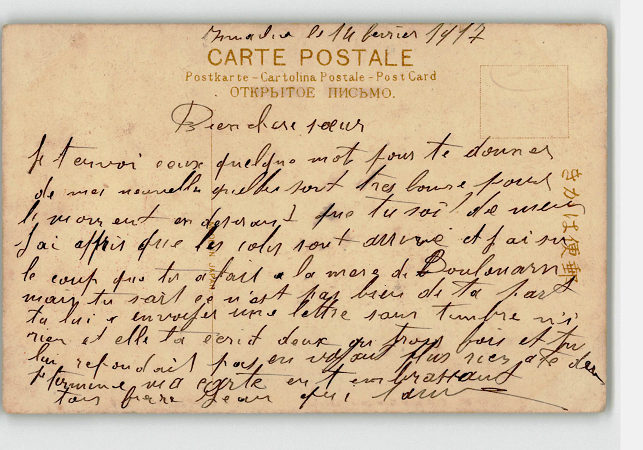 le 14 fevrier 1917
CARTE POSTALE
Postkarte - Cartolina Postale - Post Card
ОТКРЫТОЕ ПИСЬМО.
Bien chere sœur
Je t envoi ceux quelque mot pour te donner
de mai nouvelle quelle sont tres bonne pour
le moment en desirant que tu soi de meme
J ai appris que les colis sont arrivé et j ai su
le coup que tu a fait a la mere de Boulouarn
mais tu sait ce n est pas bien de ta part
tu lui a envoyer une lettre sans timbre ni
rien et elle ta ecrit deux ou trois fois et tu
lui repondait pas en plus rien a te
Je termine ma carte en t embrassant
ton frere Jean qui
きがは便郵